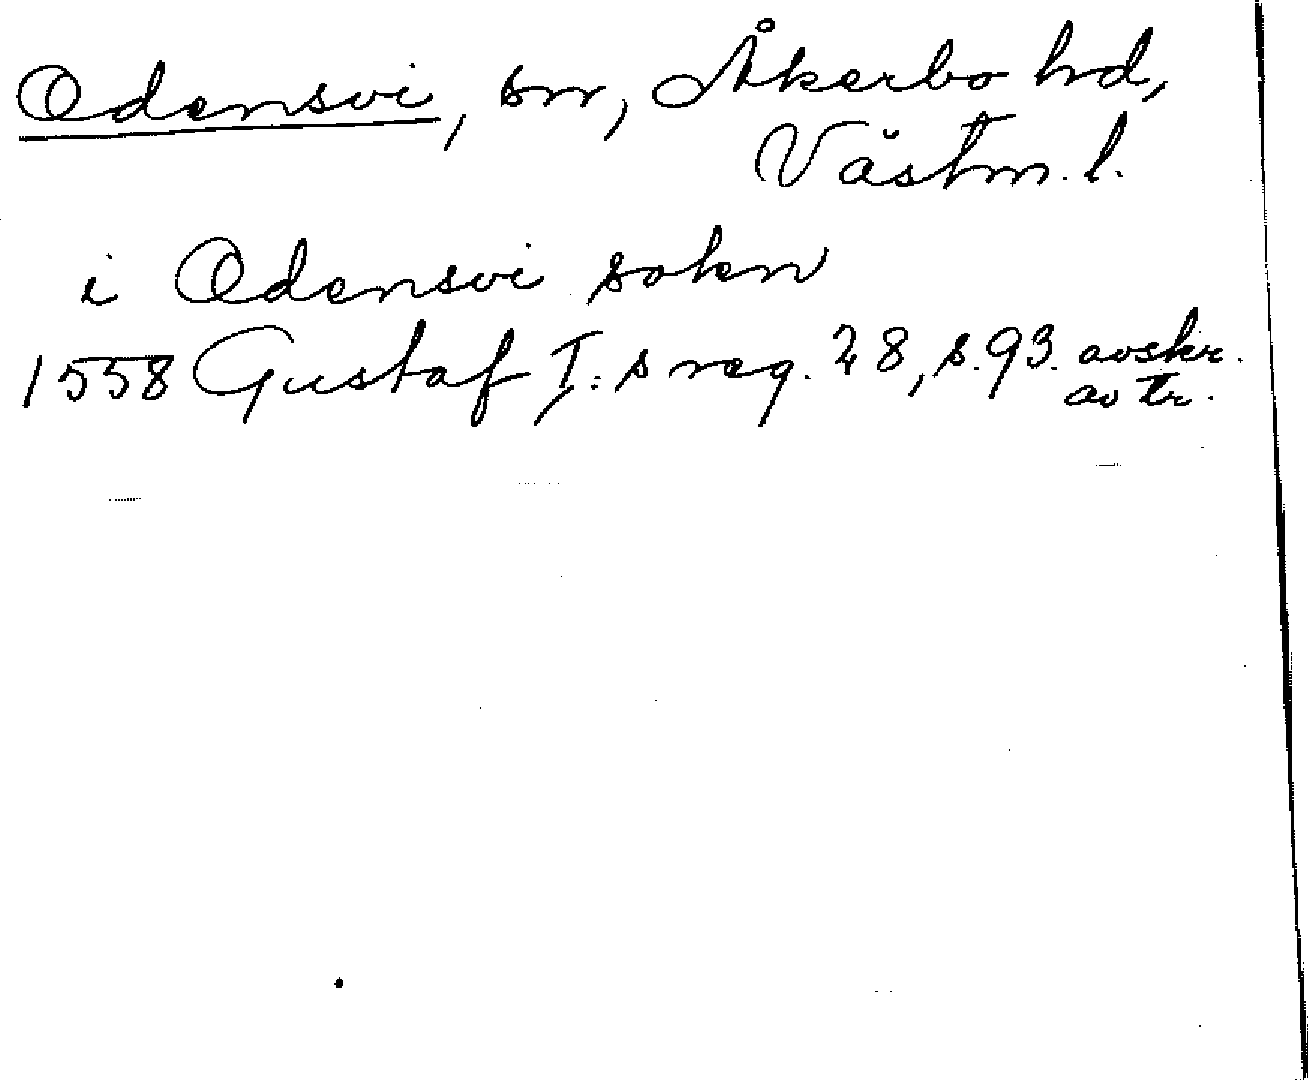 Odensvi, sn, Åkerbo hd,
Västm. l.
i Odensvi sokn
1558 Gustaf I:s reg. 28, s. 93. avskr.
av tr.